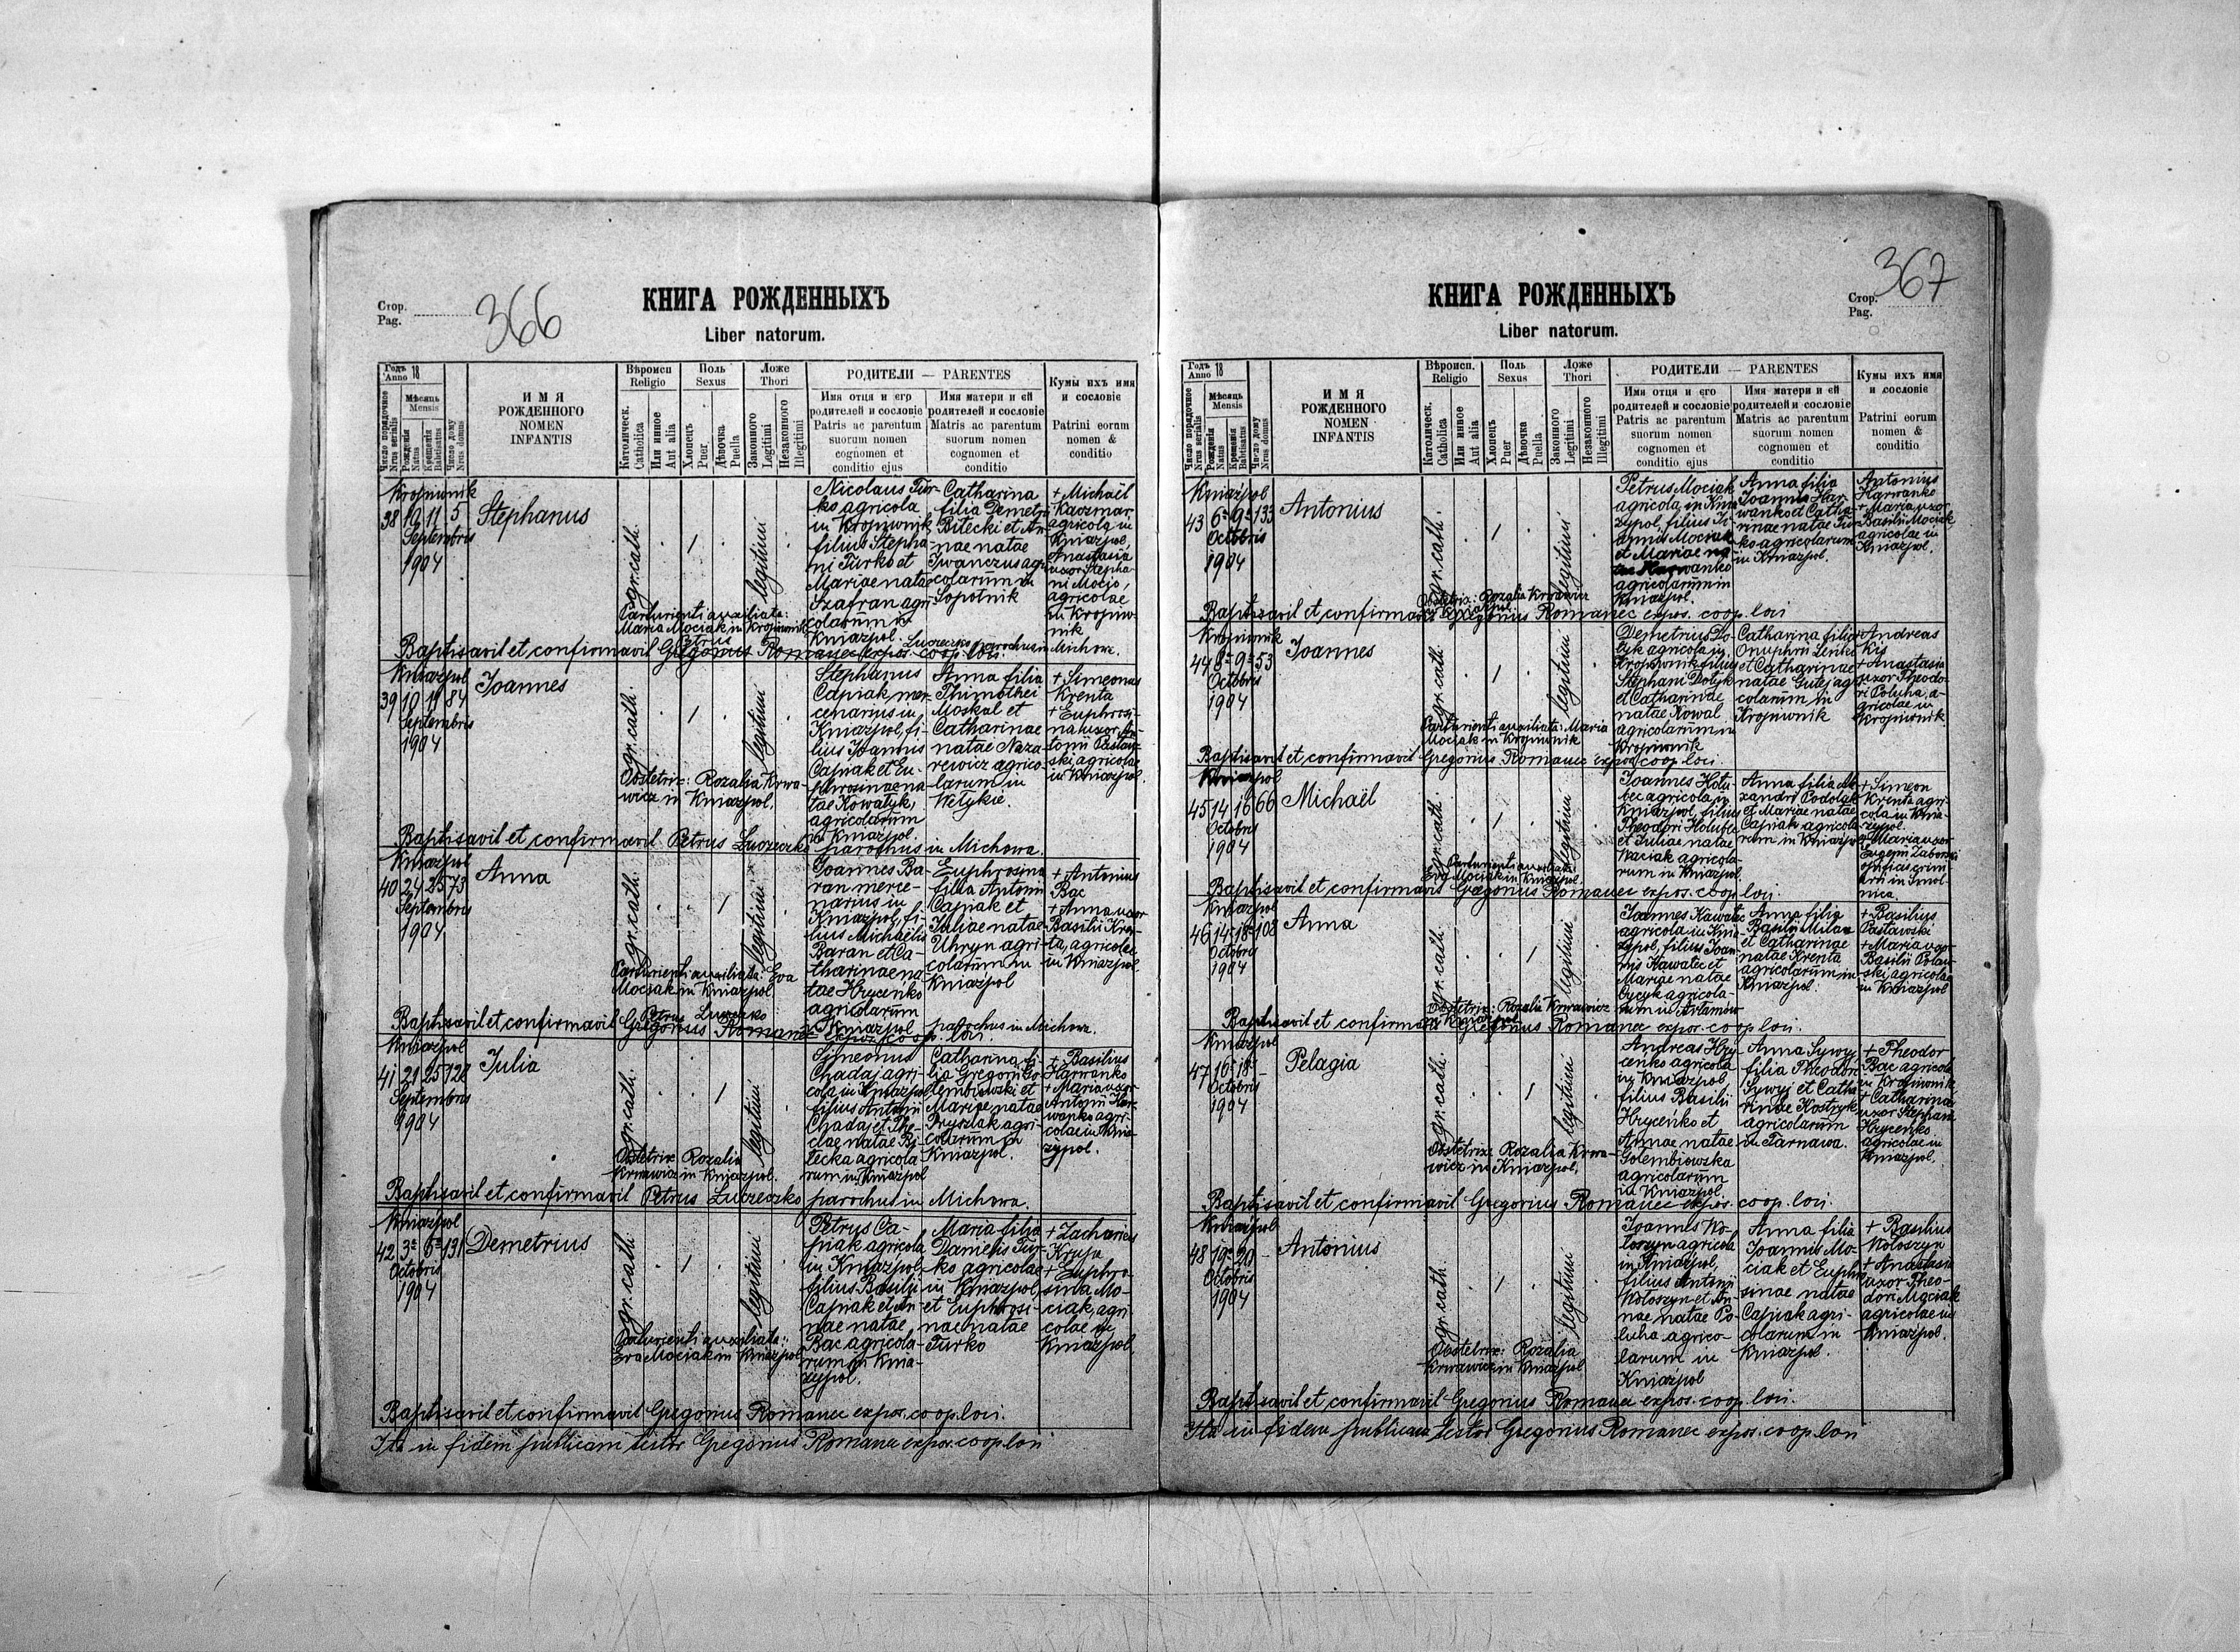 366
Стор.
Pag.
КНИГА РОЖДЕННЫХЪ
Liber natorum.
Годъ 18
Anno
Мѣсяць
Mensis
Число порядочное
Nrus serialis
Рожденія
Natus
Крещенія
Babtisatus
Число дому
Nrus domus
ИМЯ
РОЖДЕННОГО
NOMEN
INFANTIS
Вѣроисп
Religio
Католическ.
Catholica
Или инное
Aut alia
Поль
Sexus
Хлопець
Puer
Дѣвочка
Puella
Ложе
Thori
Законного
Legitimi
Незаконного
Illegitimi
РОДИТЕЛИ — PARENTES
Имя отця и его
родителей и сословіе
Patris ac parentum
suorum nomen
cognomen et
conditio ejus
Имя матери и ей
родителей и сословіе
Matris ac parentum
suorum nomen
cognomen et
conditio
Кумы ихъ имя
и сословіе
Patrini eorum
nomen &
conditio
Kropiwnik
38 10 11 5
Septembris
1904
Stephanus
gr. cath.
1
legitimi
Nicolaus Tur-
ko agricola
in Kropiwnik
filius Stepha-
ni Turko et
Mariae natae
Szafran agri-
colarum in
Kniażpol.
Catharina
filia Demetri
Bilecki et An-
nae natae
Iwanczus agri-
colarum in
Sopotnik
+ Michaël
Kaczmar,
agricola in
Kniażpol,
Anastasia
uxor Stepha-
ni Mocio,
agricolae
in Kropiw-
nik
Parturienti auxiliata:
Maria Mociak in Kropiwnik
Petrus Luczeczko parochus in Michowa.
Baptisavit et confirmavit Gregorius Romanec expos. coop. loci.
Kniażpol
39 10 11 84
Septembris
1904
Joannes
gr. cath.
1
legitimi
Stephanus
Capiak mer-
cenarius in
Kniażpol, fi-
lius Joannis
Capiak et Eu-
phrosinae na-
tae Kowalyk,
agricolarum
in Kniażpol.
Anna filia
Thimothei
Moskal et
Catharinae
natae Naza-
rewicz agrico-
larum in
Wełykie.
+ Simeonus
Krenta
+ Euphrosi-
na uxor An-
tonii Pastaw-
ski agricolae
in Kniażpol.
Obstetrix: Rozalia Krwa-
wicz in Kniażpol.
Baptisavit et confirmavit Petrus Luczeczko parochus in Michowa.
Kniażpol
40 24 25 73
Septembris
1904
Anna
gr. cath.
1
legitimi
Joannes Ba-
ran merce-
narius in
Kniażpol, fi-
lius Michaëlis
Baran et Ca-
tharinae na-
tae Hryceńko
agricolarum
in Kniażpol
Euphrosina
filia Antonii
Capiak et
Juliae natae
Uhryn agri-
colarum in
Kniażpol
+ Antonius
Bac
+ Anna uxor
Basilii Kren-
ta, agricolae
in Kniażpol.
Parturienti auxiliata: Eva
Mociak in Kniażpol
Petrus Luczeczko parochus in Michowa.
Baptisavit et confirmavit Gregorius Romanec expos. coop. loci.
Kniażpol
41 21 25 128
Septembris
1904
Julia
gr. cath.
1
legitimi
Simeonus
Chadaj agri-
cola in Kniażpol
filius Antonii
Chadaj et The-
clae natae Bi-
lecka agricola-
rum in Kniażpol
Catharina fi-
lia Gregorii Go-
lembiowski et
Mariae natae
Pryszlak agri-
colarum in
Kniażpol.
+ Basilius
Harwanko
+ Maria uxor
Antonii Har-
wanko agri-
colae in Knia-
żypol.
Obstetrix: Rozalia
Krwawicz in Kniażpol.
Baptisavit et confirmavit Petrus Luczeczko parochus in Michowa.
Kniażpol
42 3ª 6ª 131
Octobris
1904
Demetrius
gr. cath.
1
legitimi
Petrus Ca-
piak agricola
in Kniażpol,
filius Basilii
Capiak et An-
nae natae
Bac agricola-
rum in Knia-
żypol.
Maria filia
Danielis Tur-
ko agricolae
in Kniażpol,
et Euphrosi-
nae natae
Turko
+ Zacharias
Krupa
+ Euphro-
sina Mo-
ciak, agri-
colae in
Kniażpol.
Parturienti auxiliata:
Eva Mociak in Kniażpol
Baptisavit et confirmavit Gregorius Romanec expos. coop. loci.
Ita in fidem publicam testor Gregorius Romanec expos. coop. loci
367
Стор.
Pag.
КНИГА РОЖДЕННЫХЪ
Liber natorum.
Годъ 18
Anno
Мѣсяць
Mensis
Число порядочное
Nrus serialis
Рожденія
Natus
Крещенія
Babtisatus
Число дому
Nrus domus
ИМЯ
РОЖДЕННОГО
NOMEN
INFANTIS
Вѣроисп.
Religio
Католическ.
Catholica
Или инное
Aut alia
Поль
Sexus
Хлопець
Puer
Дѣвочка
Puella
Ложе
Thori
Законного
Legitimi
Незаконного
Illegitimi
РОДИТЕЛИ — PARENTES
Имя отця и его
родителей и сословіе
Patris ac parentum
suorum nomen
cognomen et
conditio ejus
Имя матери и ей
родителей и сословіе
Matris ac parentum
suorum nomen
cognomen et
conditio
Кумы ихъ имя
и сословіе
Patrini eorum
nomen &
conditio
Kniażpol
43 6ª 9ª 133
Octobris
1904
Antonius
gr. cath.
1
legitimi
Petrus Mociak
agricola in Knia-
żypol, filius
Mociak
et Mariae na-
tae Harwanko
agricolarum in
Kniażpol.
Anna filia
Joannis Har-
wanko et Catha-
rinae natae Tur-
ko agricolarum
in Kniażpol.
Antonius
Harwanko
+ Maria uxor
Basilii Mociak
agricolae in
Kniażpol.
Obstetrix: Rozalia Krwawicz
in Kniażpol.
Baptisavit et confirmavit Gregorius Romanec expos. coop. loci
Kropiwnik
44 8ª 9ª 53
Octobris
1904
Joannes
gr. cath.
1
legitimi
Demetrius Do-
lyk agricola in
Kropiwnik filius
Stephani Dolyk
et Catharinae
natae Kowal
agricolarum in
Kropiwnik
Catharina filia
Onuphrii
et Catharinae
natae Gutej agri-
colarum in
Kropiwnik
+ Andreas
Kis
+ Anastasia
uxor Theodo-
ri Poluha, a-
gricolae in
Kropiwnik
Parturienti auxiliata: Maria
Mociak in Kropiwnik
Baptisavit et confirmavit Gregorius Romanec expos. coop. loci.
Kniażpol
45 14 16 66
Octobris
1904
Michaël
gr. cath.
1
legitimi
Joannes Holu-
bec agricola in
Kniażpol, filius
Theodori Holubec
et Juliae natae
Waciak agricola-
rum in Kniażpol.
Anna filia Ale-
xandri Podolak
et Mariae natae
Capiak agricola-
rum in Kniażpol.
+ Simeon
Krenta agri-
cola in Knia-
żypol.
+ Maria uxor
Eugenii Zaborski
opificis
in Smol-
nica.
Parturienti auxiliata:
Eva Mociak in Kniażpol.
Baptisavit et confirmavit Gregorius Romanec expos. coop. loci.
Kniażpol
46 14 18 108
Octobris
1904
Anna
gr. cath.
1
legitimi
Joannes Kawalec
agricola in Knia-
żypol, filius Joan-
nis Kawalec et
Mariae natae
Cycyk agricola-
rum in Arłamów
Anna filia
Basilii Milan
et Catharinae
natae Krenta
agricolarum in
Kniażpol.
+ Basilius
Pastawski
+ Maria uxor
Basilii
agricolae
in Kniażpol
Obstetrix: Rozalia Krwawicz
in Kniażpol
Baptisavit et confirmavit Gregorius Romanec expos. coop. loci.
Kniażpol
47 16 18 -
Octobris
1904
Pelagia
gr. cath.
1
legitimi
Andreas Hry-
ceńko agricola
in Kniażpol
filius Basilii
Hryceńko et
Annae natae
Golembiowska
agricolarum
in Kniażpol.
Anna Sywyj
filia Theodori
Sywyj et Catha-
rinae Kostryk
agricolarum
in Tarnawa.
+ Theodor
Bac agricola
in Kropiwnik
+ Catharina
uxor Stephani
Hryceńko
agricolae in
Kniażpol.
Obstetrix: Rozalia Krwa-
wicz in Kniażpol.
Baptisavit et confirmavit Gregorius Romanec expos. coop. loci.
Kniażpol
48 19 20 -
Octobris
1904
Antonius
gr. cath.
1
legitimi
Joannes Wo-
łoszyn agricola
in Kniażpol,
filius Antonii
Wołoszyn et An-
nae natae Po-
luha agrico-
larum in
Kniażpol
Anna filia
Joannis Mo-
ciak et Euphro-
sinae natae
Capiak agri-
colarum in
Kniażpol.
+ Basilius
Wołoszyn
+ Anastasia
uxor Theo-
dori Mociak
agricolae in
Kniażpol.
Obstetrix: Rozalia
Krwawicz in Kniażpol
Baptisavit et confirmavit Gregorius Romanec expos. coop. loci.
Ita in fidem publicam testor Gregorius Romanec expos. coop. loci